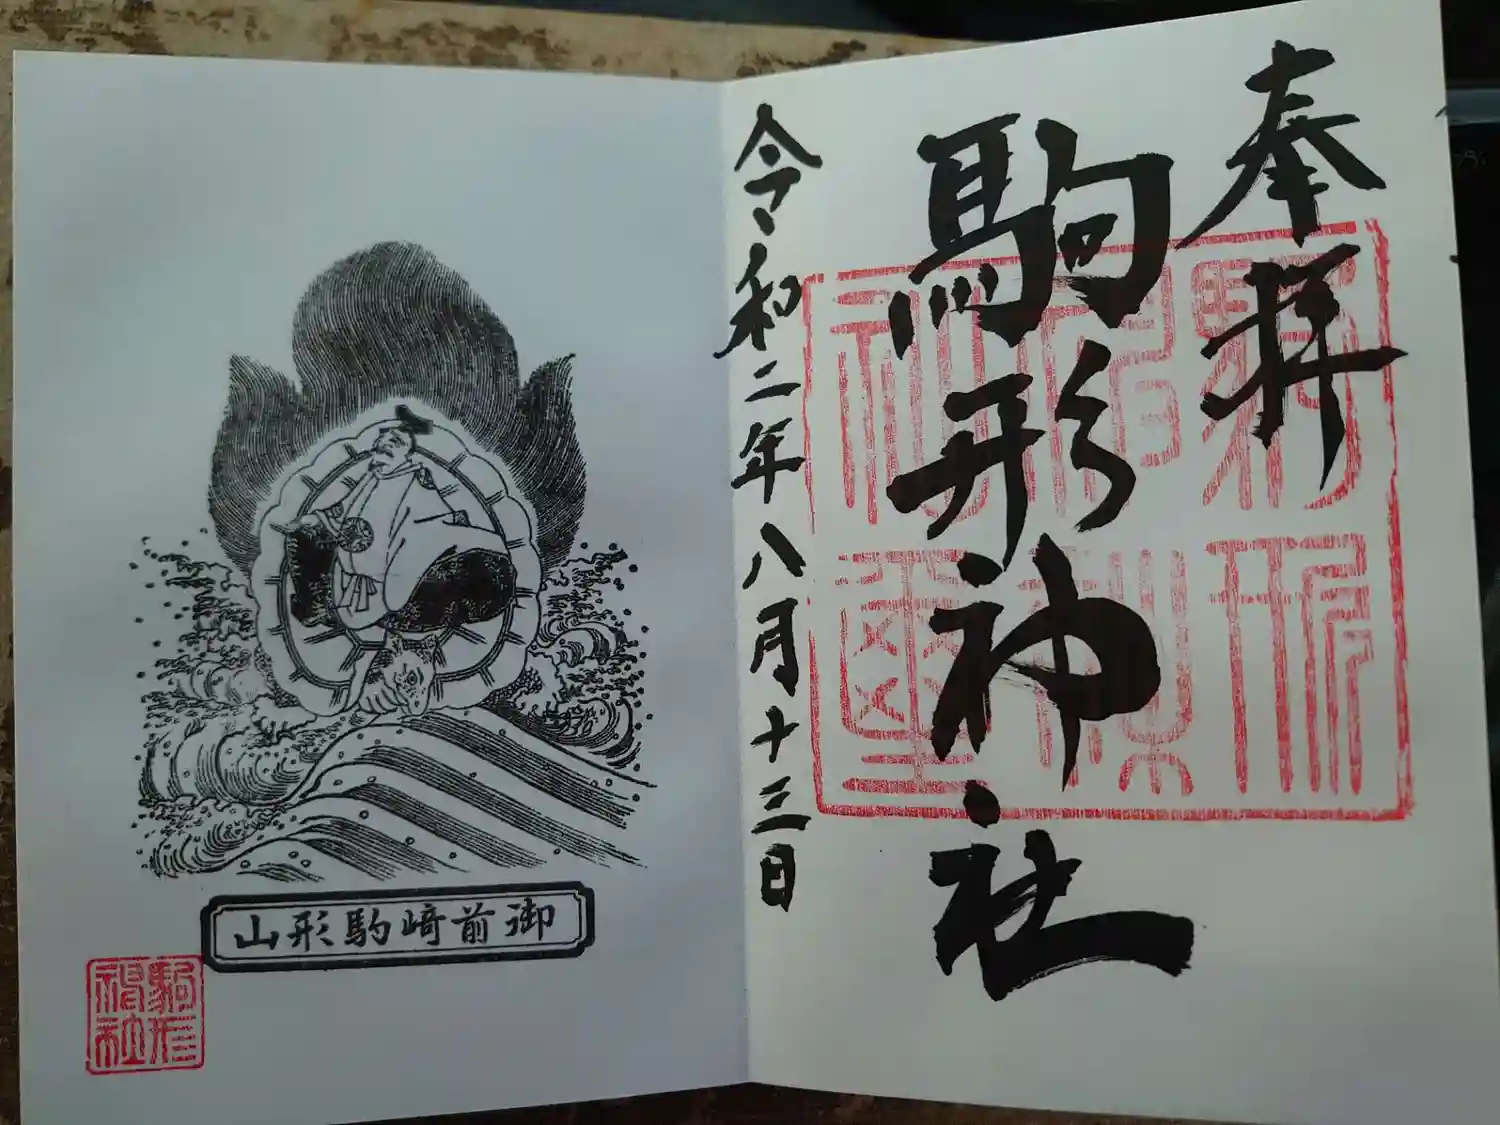 奉拝
駒形神社
令和二年八月十三日
御前﨑駒形山
駒形
神社